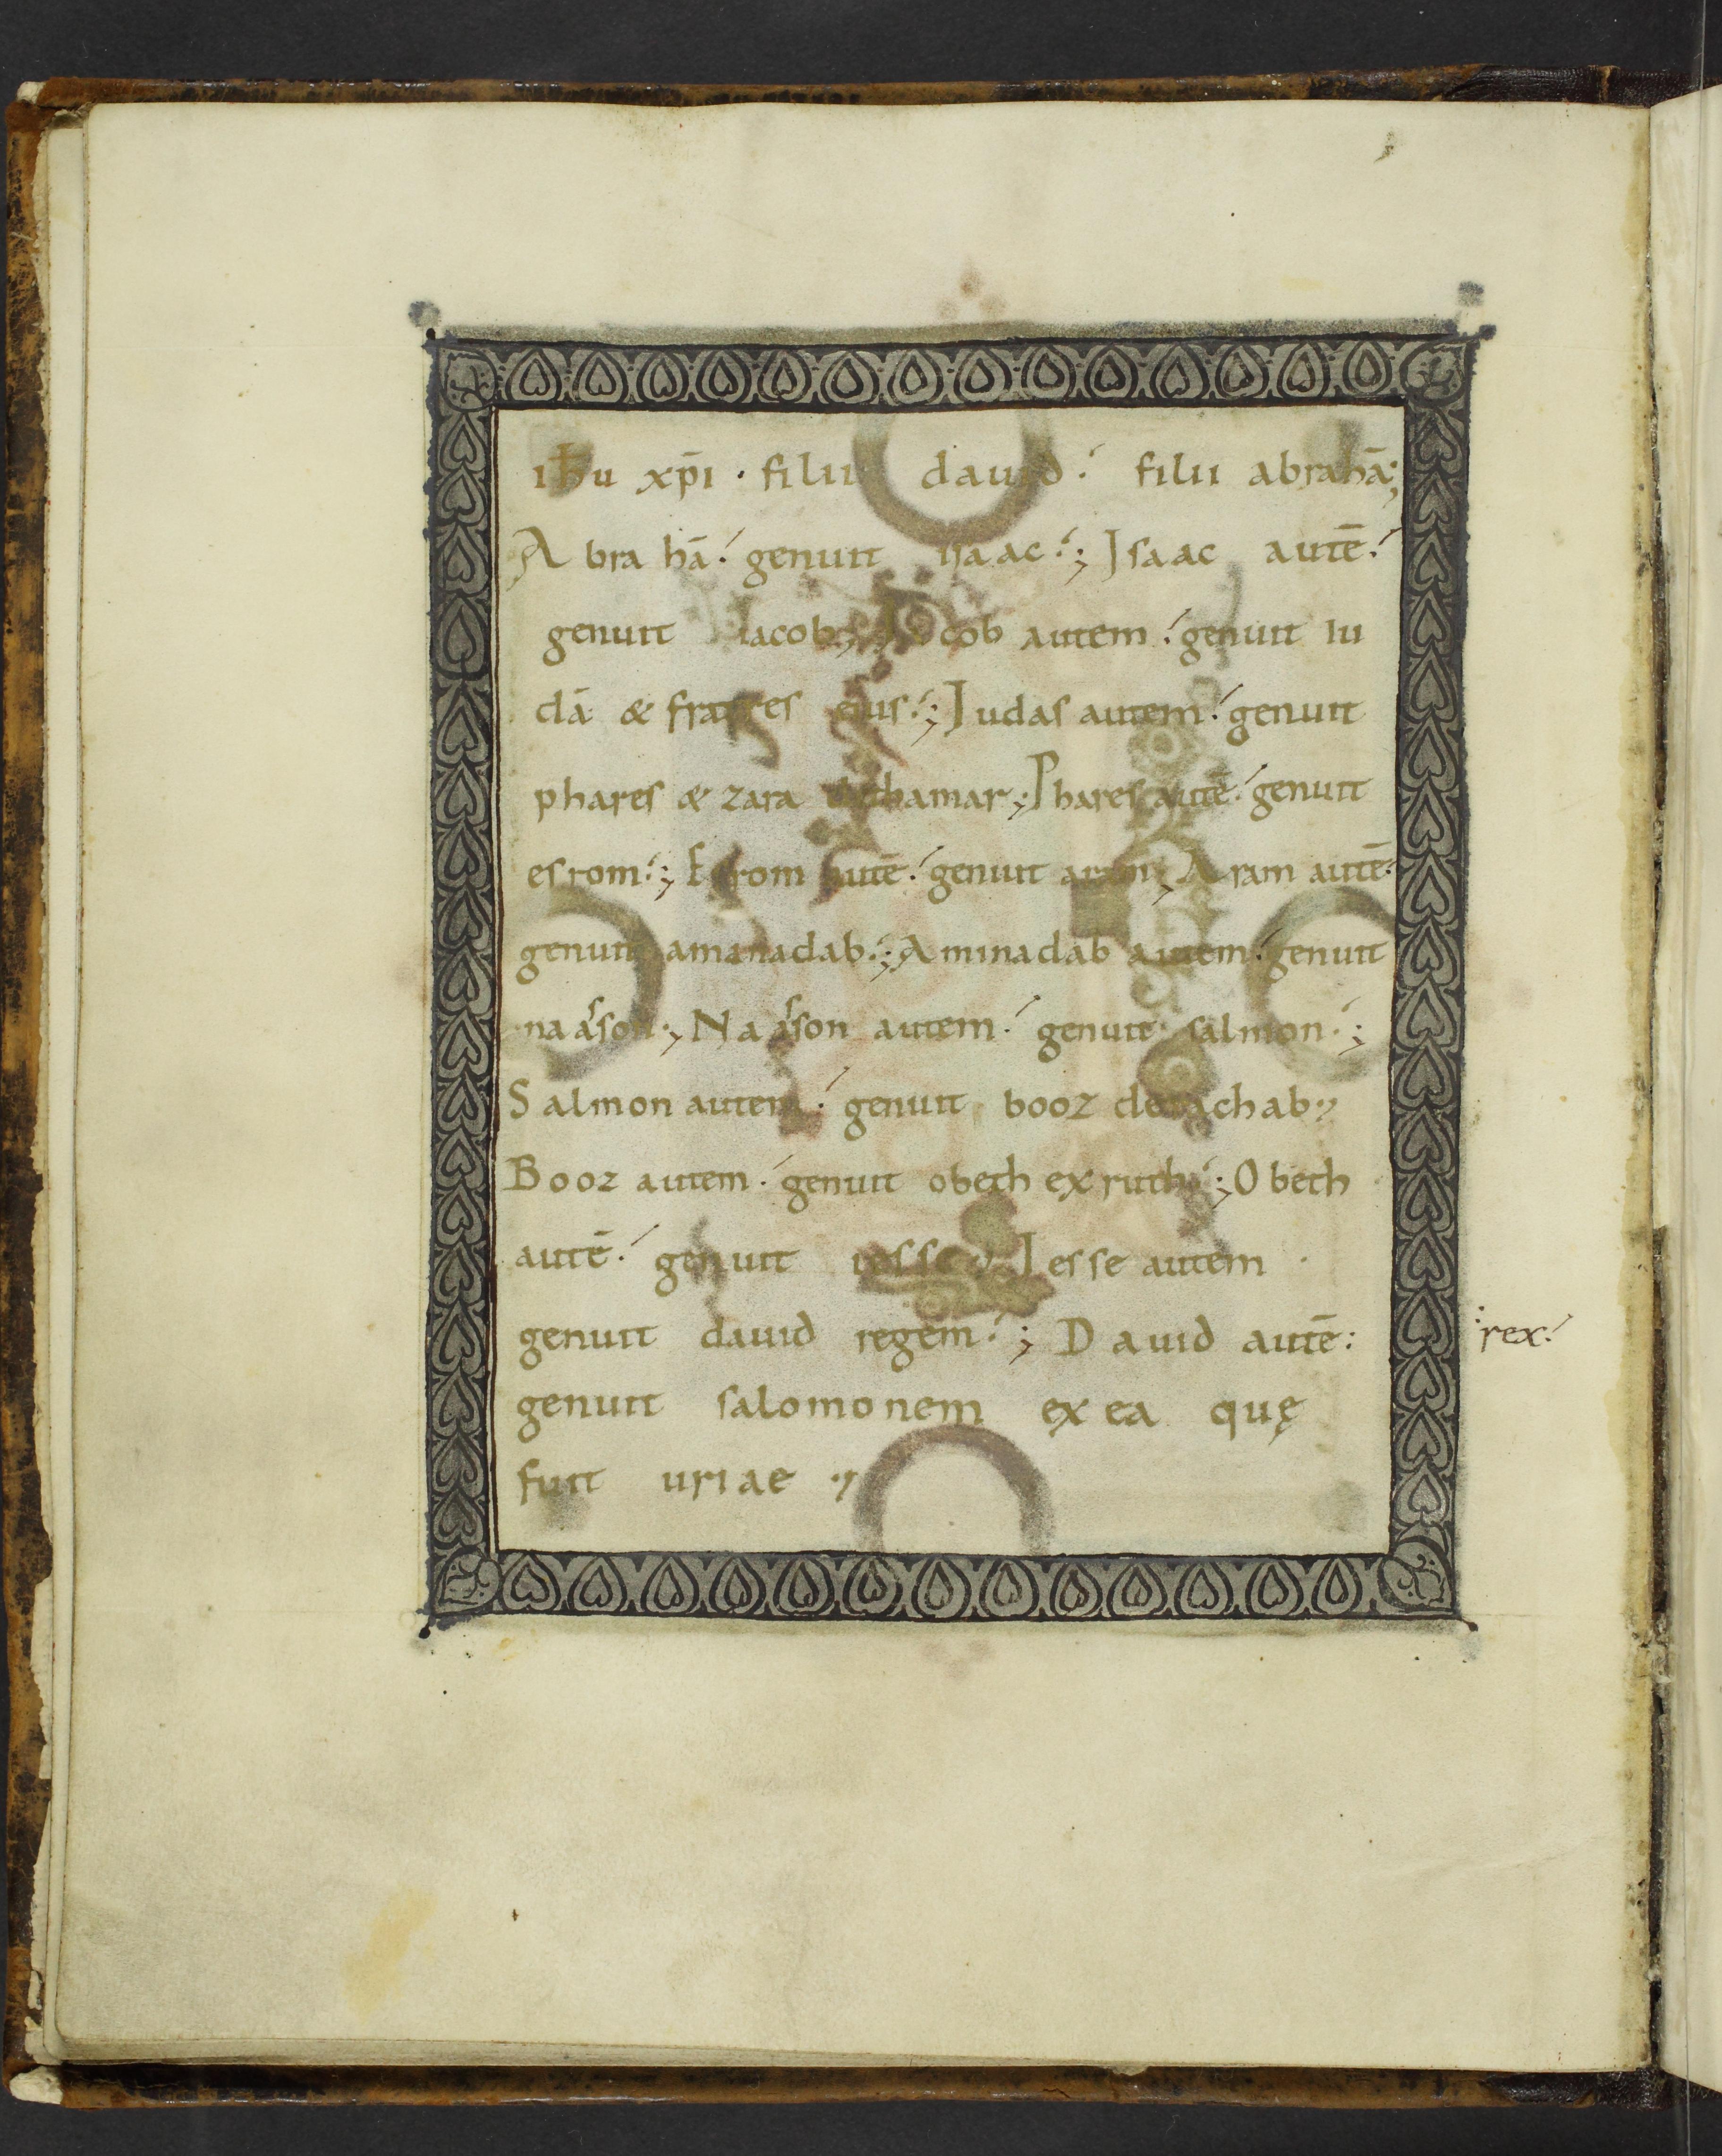 ihu xp̄i · filii dauid filii abrahā;
Abrahā genuit isaac; Isaac autē
genuit iacob; Iacob autem genuit iu
dā & fratres eius; Iudas autem genuit
phares & zara de thamar; Phares autē genuit
esrom; Esrom autē genuit aram; Aram autē
genuit aminadab; Aminadab autem genuit
naason; Naason autem genuit salmon;
Salmon autem genuit booz de rachab;
Booz autem genuit obeth ex ruth; Obeth
autē genuit iesse; Iesse autem
genuit dauid regem; Dauid autē: rex
genuit salomonem ex ea quę
fuit uriae;